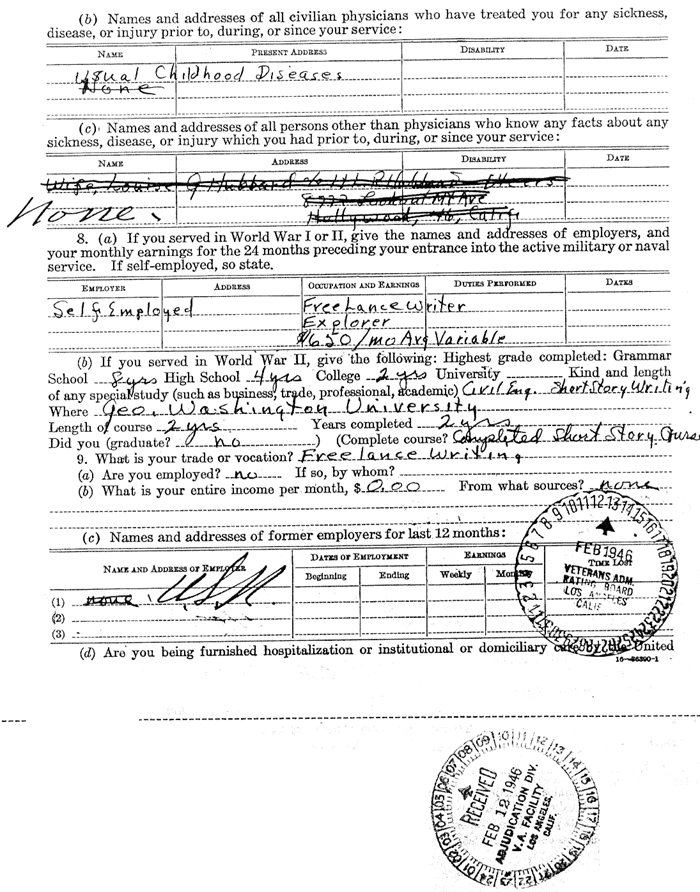 (b) Names and addresses of all civilian physicians who have treated you for any sickness,
disease, or injury prior to, during, or since your service:
NAME PRESENT ADDRESS DISABILITY DATE
Usual Childhood Diseases
None
(c) Names and addresses of all persons other than physicians who know any facts about any
sickness, disease, or injury which you had prior to, during, or since your service:
NAME ADDRESS DISABILITY DATE
Wife, Louise G Hubbard
Ave
Hollywood, 46, Calif
None.
8. (a) If you served in World War I or II, give the names and addresses of employers, and
your monthly earnings for the 24 months preceding your entrance into the active military or naval
service. If self-employed, so state.
EMPLOYER ADDRESS OCCUPATION AND EARNINGS DUTIES PERFORMED DATES
Self Employed Freelance Writer
Explorer
$650/mo Avg Variable
(b) If you served in World War II, give the following: Highest grade completed: Grammar
School 8 yrs High School 4 yrs College 2 yrs University Kind and length
of any special study (such as business, trade, professional, academic) Civil Eng. Short Story Writing
Where Geo. Washington University
Length of course 2 yrs Years completed 2 yrs
Did you (graduate? no ) (Complete course? Completed Short Story Course
9. What is your trade or vocation? Freelance Writing
(a) Are you employed? no If so, by whom?
(b) What is your entire income per month, $ 0.00 From what sources? none
(c) Names and addresses of former employers for last 12 months:
NAME AND ADDRESS OF EMPLOYER DATES OF EMPLOYMENT EARNINGS TIME LOST
Beginning Ending Weekly Monthly
(1) none. USN
(2)
(3)
FEB 1946
VETERANS ADM.
RATING BOARD
LOS ANGELES
CALIF
(d) Are you being furnished hospitalization or institutional or domiciliary care by the United
16-26390-1
RECEIVED
FEB 12 1946
ADJUDICATION DIV.
V.A. FACILITY
LOS ANGELES,
CALIF.